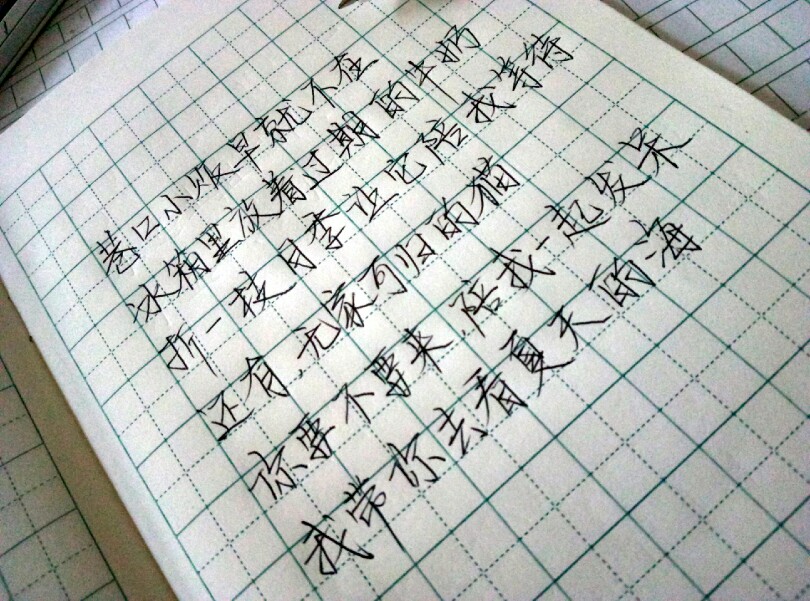 巷口小贩早就不在
冰箱里放着过期的牛奶
折一枝月季让它陪我等待
还有,无家可归的猫
你要不要来,陪我一起发呆
我带你去看夏天的海